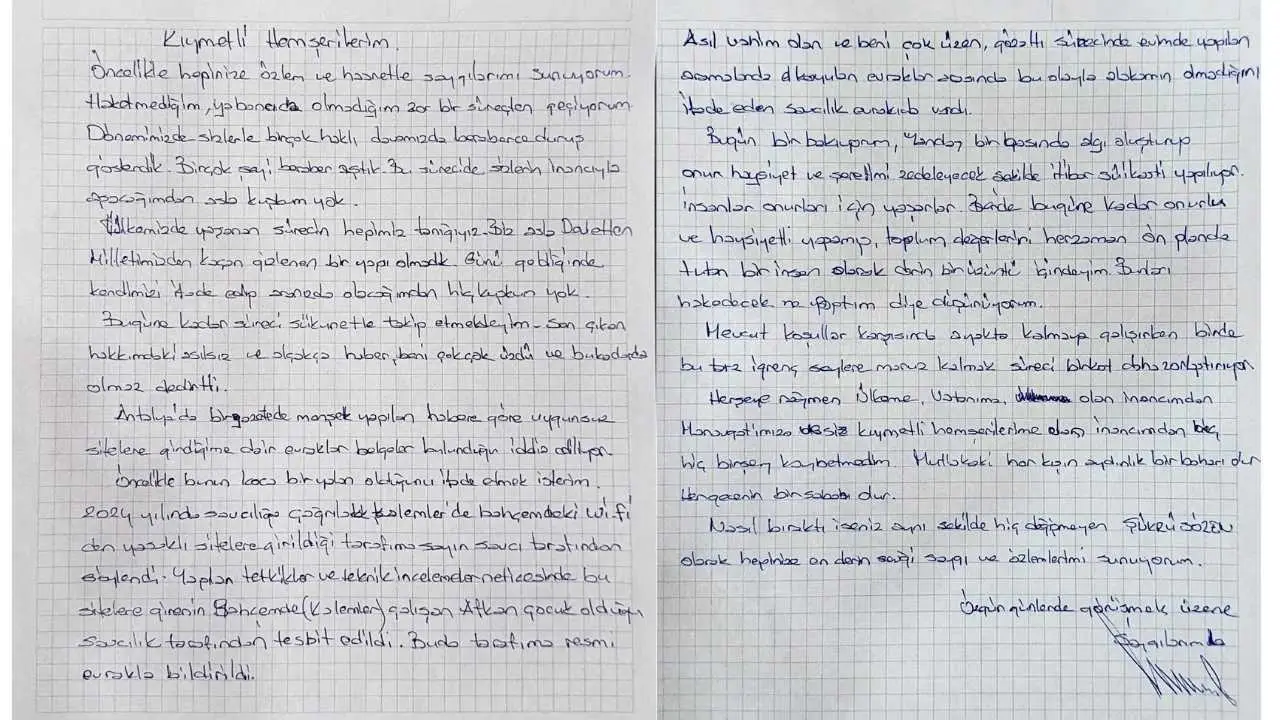 Kıymetli Hemşerilerim.
Öncelikle hepinize özlem ve hasretle saygılarımı sunuyorum.
Haketmediğim, yabancıda olmadığım zor bir süreçten geçiyorum
Dönemimizde sizlerle birçok haklı davamızda beraberce duruş
gösterdik. Birçok şeyi beraber aştık. Bu sürecide sizlerin inancıyla
aşacağımdan asla kuşkum yok.
Ülkemizde yaşanan sürecin hepimiz tanığıyız. Biz asla Devletten
Milletimizden kaçan gizlenen bir yapı olmadık. Günü geldiğinde
kendimizi ifade edip aranızda olacağımdan hiç kuşkum yok.
Bugüne kadar süreci sükunetle takip etmekteyim. Son çıkan
hakkımdaki asılsız ve alçakça haber, beni çokçok üzdü ve bukadarda
olmaz dedirtti.
Antalya'da birgazetede manşet yapılan habere göre uygunsuz
sitelere girdiğime dair evraklar belgeler bulunduğu iddia ediliyor.
Öncelikle bunun koca bir yalan olduğunu ifade etmek isterim.
2024 yılında savcılığa çağrılarak Kalemler'de bahçemdeki wifi
den yasaklı sitelere girildiği tarafıma sayın savcı tarafından
söylendi. Yapılan tetkikler ve teknik incelemeler neticesinde bu
sitelere girenin Bahçemde (Kalemler) çalışan Afkan çocuk olduğu,
Savcılık tarafından tesbit edildi. Buda tarafıma resmi
evrakla bildirildi.
Asıl vahim olan ve beni çok üzen, gözaltı sürecinde evimde yapılan
aramalarda alkoyulan evraklar arasında bu olayla alakamın olmadığını
ifade eden savcılık evrakıda vardı.
Bugün bir bakıyorum, Yandaş bir basında algı oluşturup
onur haysiyet ve şerefimi zedeleyecek şekilde itibar süikasti yapılıyor.
İnsanlar onurları için yaşarlar. Bende bugüne kadar onurlu
ve haysiyetli yaşamış, toplum değerlerini herzaman ön planda
tutan bir insan olarak derin bir üzüntü içindeyim. Bunları
hakedecek ne yaptım diye düşünüyorum.
Mevcut koşullar karşısında ayakta kalmaya çalışırken birde
bu tarz iğrenç şeylere maruz kalmak süreci birkat daha zorlaştırıyor.
Herşeye rağmen Ülkeme, Vatanıma, olan inancımdan
Manavgatımıza ve siz kıymetli hemşerilerime olan inancımdan
hiç birşey kaybetmedim. Mutlakaki her kışın aydınlık bir baharı dır
Her gecenin bir sabahı dır.
Nasıl bıraktı iseniz aynı şekilde hiç değişmeyen ŞÜKRÜ SÖZEN
olarak hepinize en derin sevgi saygı ve özlemlerimi sunuyorum.
Özgün günlerde görüşmek üzere
Saygılarımla